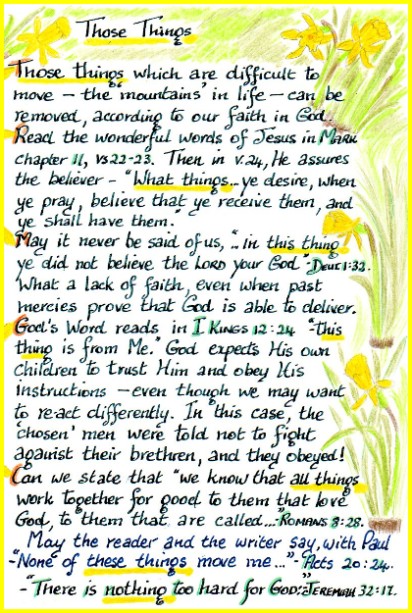 Those Things
Those things which are difficult to
move – the 'mountains' in life – can be
removed, according to our faith in God.
Read the wonderful words of Jesus in Mark
chapter 11, vs 22-23. Then in v.24, He assures
the believer – "What things... ye desire, when
ye pray, believe that ye receive them, and
ye shall have them."
May it never be said of us, "..in this thing
ye did not believe the LORD your God" - Deut 1:32.
What a lack of faith, even when past
mercies prove that God is able to deliver.
God's Word reads in I Kings 12:24 "-this
thing is from Me." God expects His own
children to trust Him and obey His
instructions – even though we may want
to react differently. In this case, the
'chosen' men were told not to fight
against their brethren, and they obeyed!
Can we state that "we know that all things
work together for good to them that love
God, to them that are called...-" Romans 8:28.
May the reader and the writer say, with Paul
-"None of these things move me..." - Acts 20:24.
-"There is nothing too hard for God:" Jeremiah 32:17.